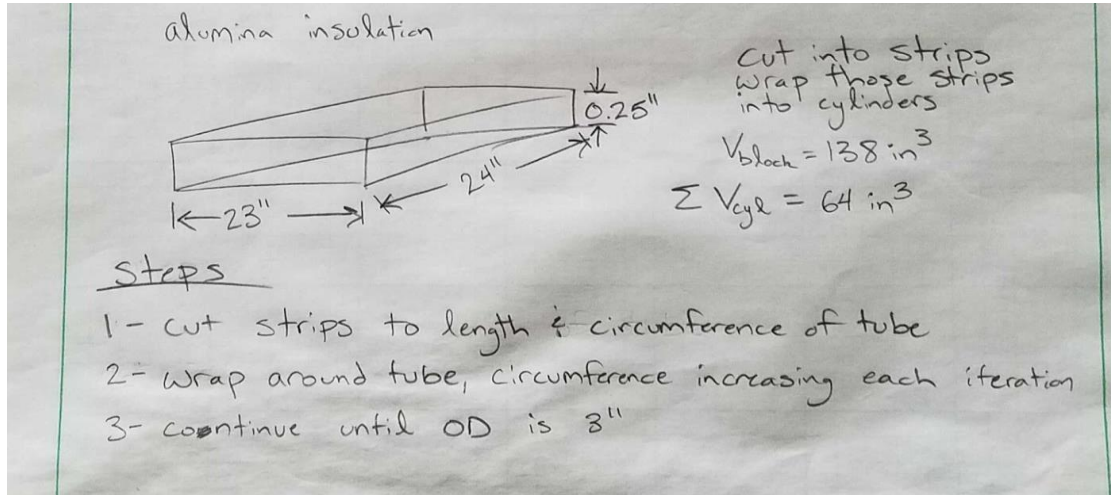 alumina insulation
cut into strips
wrap those strips
into cylinders
0.25"
24"
23"
Vblock = 138 in³
Σ Vcyl = 64 in³
Steps
1- cut strips to length & circumference of tube
2- wrap around tube, circumference increasing each iteration
3- continue until OD is 3"